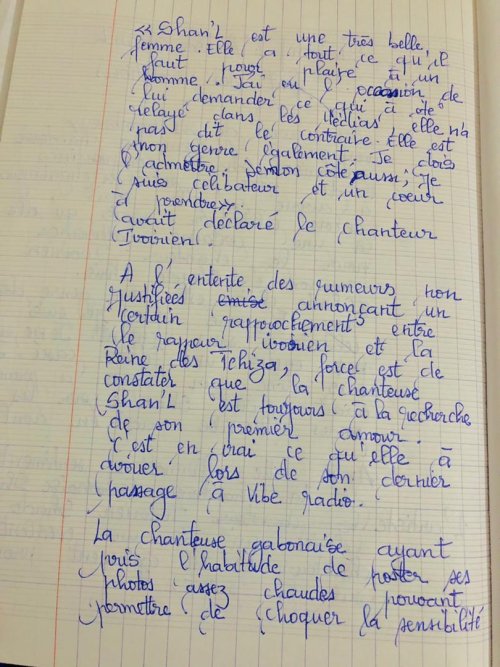 « Shan'L est une très belle
femme. Elle a tout ce qu'il
faut pour plaire à un
homme. J'ai eu l'occasion de
lui demander ce qui à été
relayé dans les médias, elle n'a
pas dit le contraire. Elle est
mon genre également. Je dois
l'admettre, de mon côté aussi, Je
suis célibateur et un cœur
à prendre ».
avait déclaré le chanteur
Ivoirien.
A l'entente des rumeurs non
justifiées emise annonçant un
certain rapprochement entre
le rappeur ivoirien et la
Reine des Tchiza, force est de
constater que la chanteuse
Shan'L est toujours à la recherche
de son premier amour.
C'est en vrai ce qu'elle à
avouer lors de son dernier
passage à Vibe radio.
La chanteuse gabonaise ayant
pris l'habitude de poster ses
photos assez chaudes pouvant
permettre de choquer la sensibilité